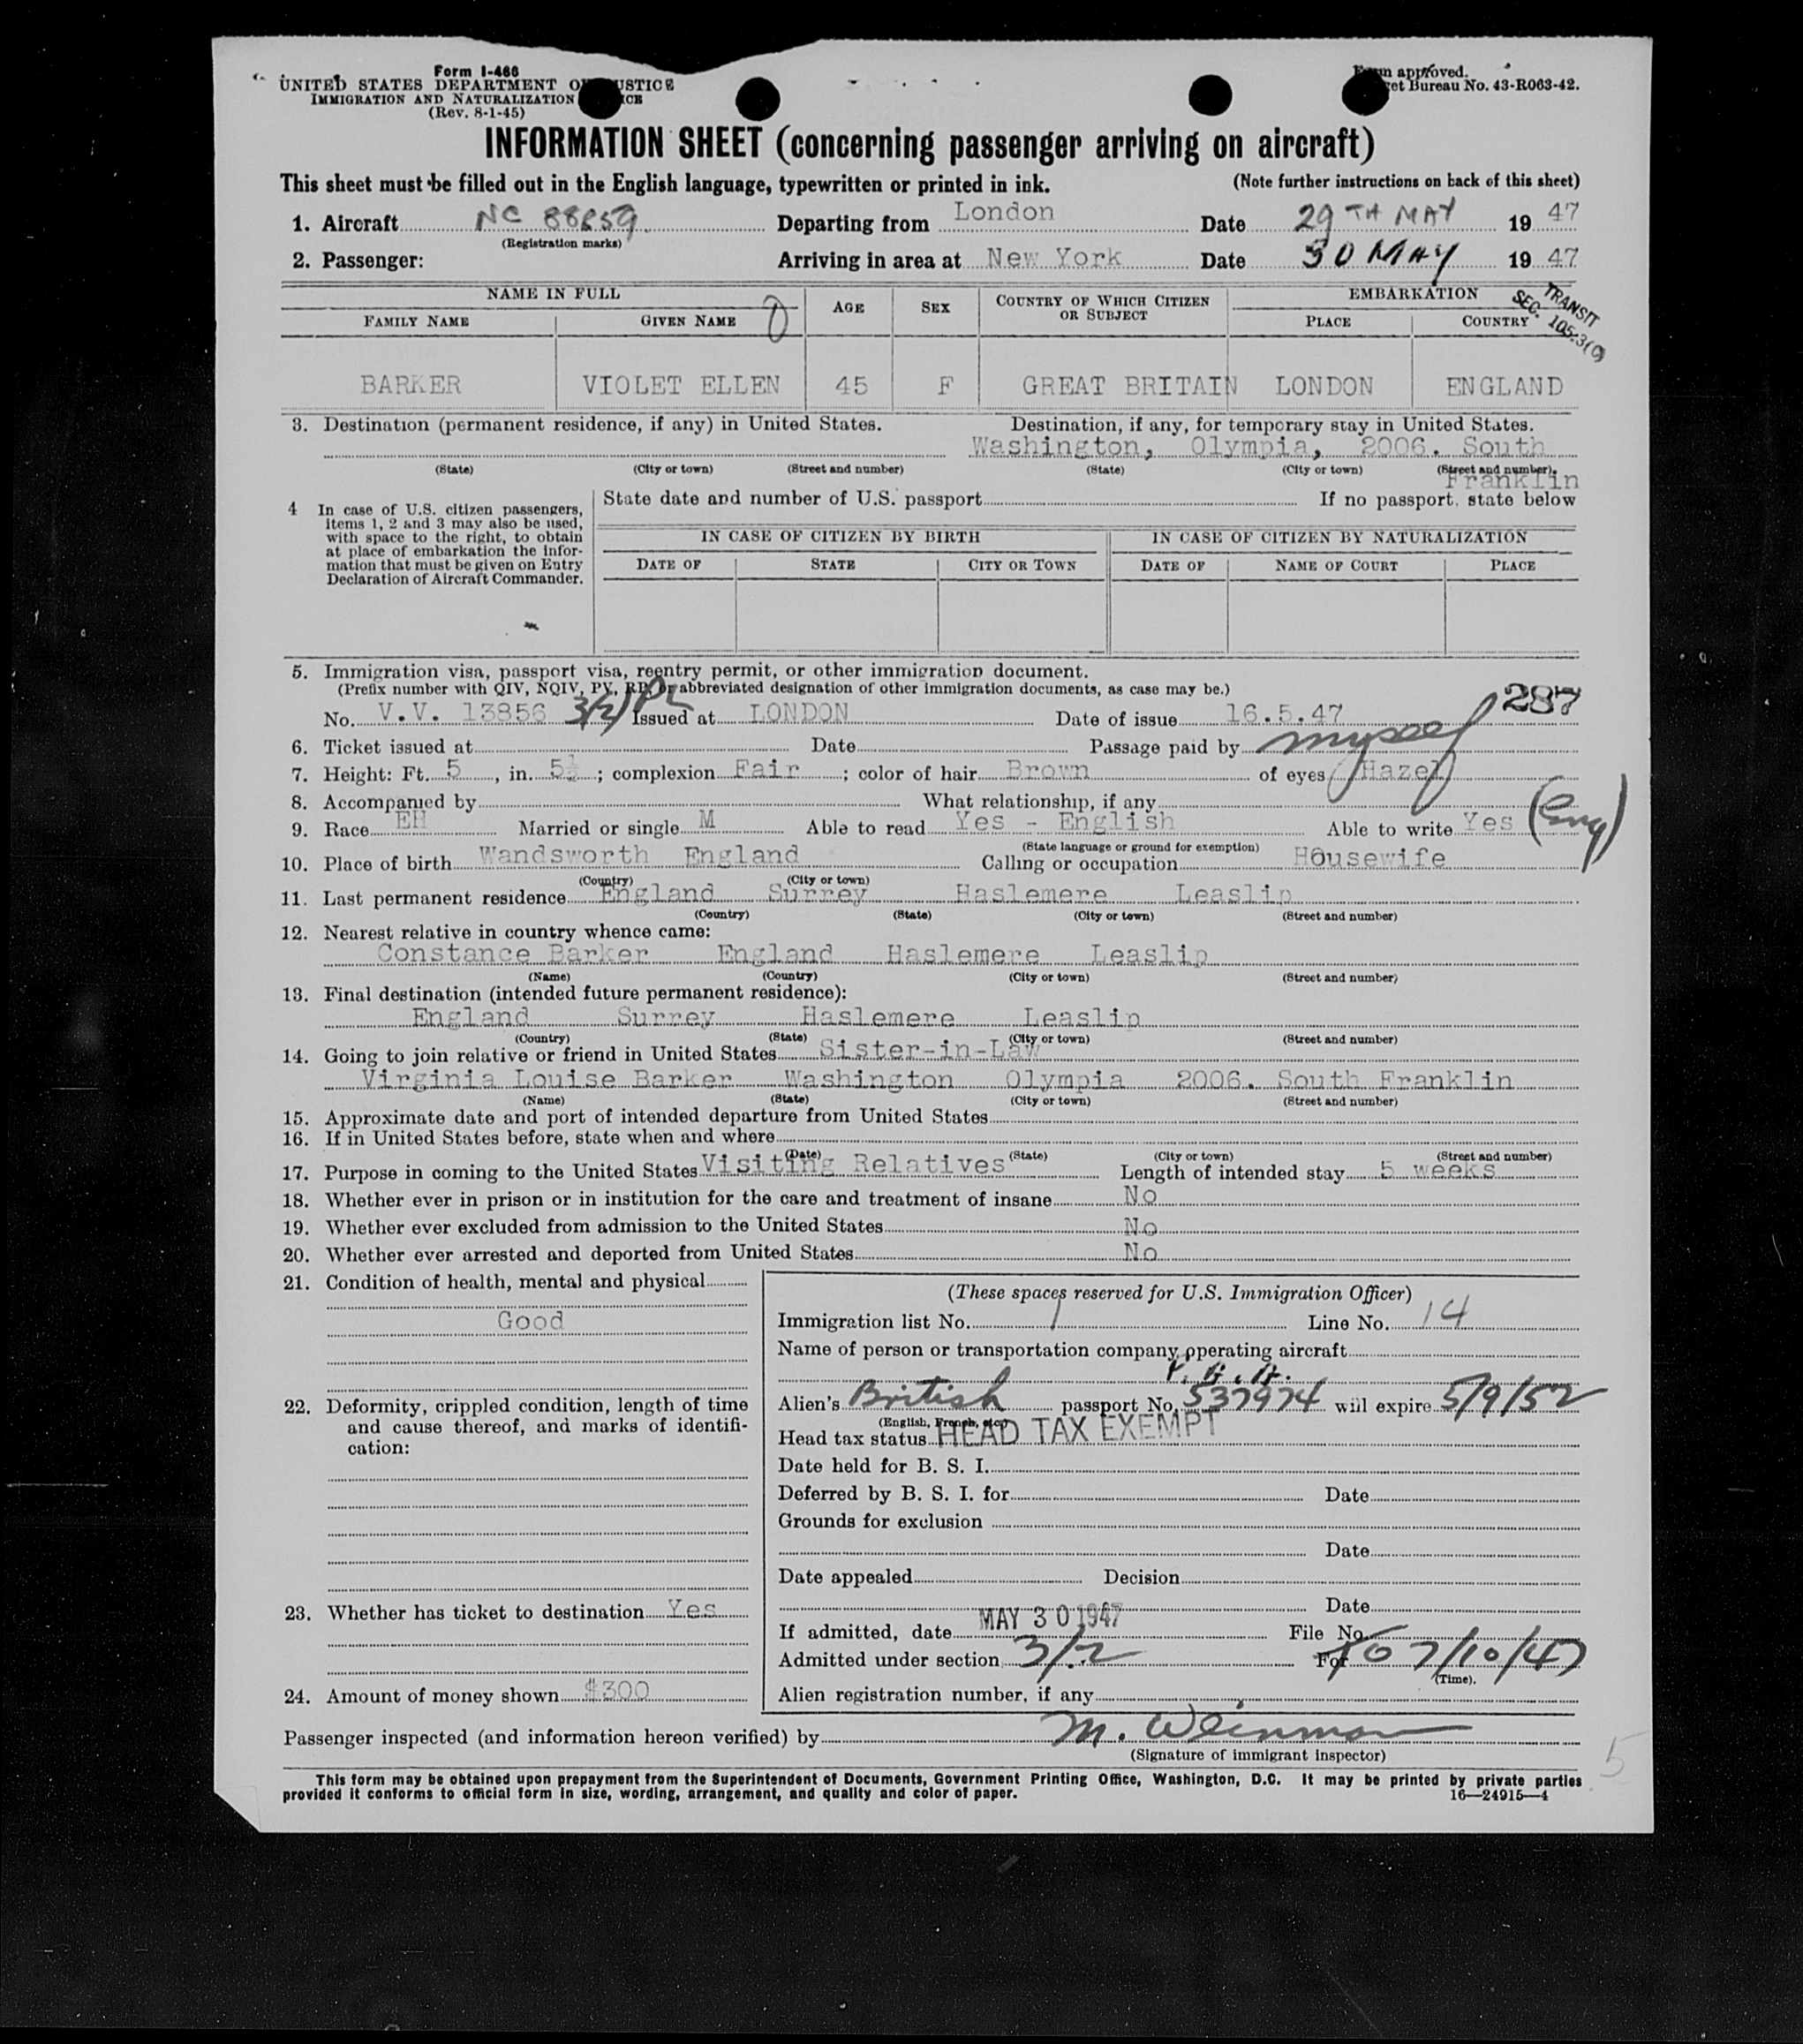 Form I-466
UNITED STATES DEPARTMENT OF JUSTICE
IMMIGRATION AND NATURALIZATION
(Rev. 8-1-45)
Form approved.
Budget Bureau No. 43-R063-42.
INFORMATION SHEET (concerning passenger arriving on aircraft)
This sheet must be filled out in the English language, typewritten or printed in ink. (Note further instructions on back of this sheet)
1. Aircraft NC 88859 Departing from London Date 29TH MAY 1947
(Registration marks)
2. Passenger: Arriving in area at New York Date 30 MAY 1947
NAME IN FULL AGE SEX COUNTRY OF WHICH CITIZEN OR SUBJECT EMBARKATION
TRANSIT
SEC. 105.3(c)
FAMILY NAME GIVEN NAME PLACE COUNTRY
BARKER VIOLET ELLEN 45 F GREAT BRITAIN LONDON ENGLAND
3. Destination (permanent residence, if any) in United States. Destination, if any, for temporary stay in United States.
Washington, Olympia, 2006. South
(State) (City or town) (Street and number) (State) (City or town) (Street and number)
Franklin
4 In case of U.S. citizen passengers, items 1, 2 and 3 may also be used, with space to the right, to obtain at place of embarkation the information that must be given on Entry Declaration of Aircraft Commander.
State date and number of U.S. passport If no passport, state below
IN CASE OF CITIZEN BY BIRTH IN CASE OF CITIZEN BY NATURALIZATION
DATE OF STATE CITY OR TOWN DATE OF NAME OF COURT PLACE
5. Immigration visa, passport visa, reentry permit, or other immigration document.
(Prefix number with QIV, NQIV, PV, RP, or abbreviated designation of other immigration documents, as case may be.)
287
No. V.V. 13856 3(2) PL Issued at LONDON Date of issue 16.5.47
6. Ticket issued at Date Passage paid by myself
7. Height: Ft. 5, in. 5½; complexion Fair; color of hair Brown of eyes Hazel
8. Accompanied by What relationship, if any
9. Race EH Married or single M Able to read Yes - English Able to write Yes (Eng)
(State language or ground for exemption)
10. Place of birth Wandsworth England Calling or occupation Housewife
(Country) (City or town)
11. Last permanent residence England Surrey Haslemere Leaslip
(Country) (State) (City or town) (Street and number)
12. Nearest relative in country whence came:
Constance Barker England Haslemere Leaslip
(Name) (Country) (City or town) (Street and number)
13. Final destination (intended future permanent residence):
England Surrey Haslemere Leaslip
(Country) (State) (City or town) (Street and number)
14. Going to join relative or friend in United States Sister-in-Law
Virginia Louise Barker Washington Olympia 2006. South Franklin
(Name) (State) (City or town) (Street and number)
15. Approximate date and port of intended departure from United States
16. If in United States before, state when and where
(Date) (State) (City or town) (Street and number)
17. Purpose in coming to the United States Visiting Relatives Length of intended stay 5 weeks
18. Whether ever in prison or in institution for the care and treatment of insane No
19. Whether ever excluded from admission to the United States No
20. Whether ever arrested and deported from United States No
21. Condition of health, mental and physical
Good
22. Deformity, crippled condition, length of time and cause thereof, and marks of identification:
23. Whether has ticket to destination Yes
24. Amount of money shown $300
(These spaces reserved for U.S. Immigration Officer)
Immigration list No. 1 Line No. 14
Name of person or transportation company operating aircraft
Alien's British passport No. 537974 will expire 5/9/52
(English, French, etc.)
Head tax status HEAD TAX EXEMPT
Date held for B. S. I.
Deferred by B. S. I. for Date
Grounds for exclusion
Date
Date appealed Decision
Date
If admitted, date MAY 30 1947 File No.
Admitted under section 3/2 For to 7/10/47
(Time).
Alien registration number, if any
Passenger inspected (and information hereon verified) by M. Weinman
(Signature of immigrant inspector)
5
This form may be obtained upon prepayment from the Superintendent of Documents, Government Printing Office, Washington, D.C. It may be printed by private parties
provided it conforms to official form in size, wording, arrangement, and quality and color of paper. 16—24915—4